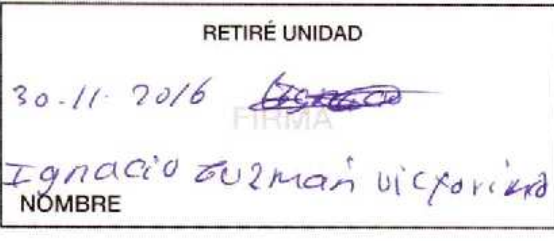 RETIRÉ UNIDAD
30-11-2016
FIRMA
Ignacio Guzmán Victorino
NOMBRE